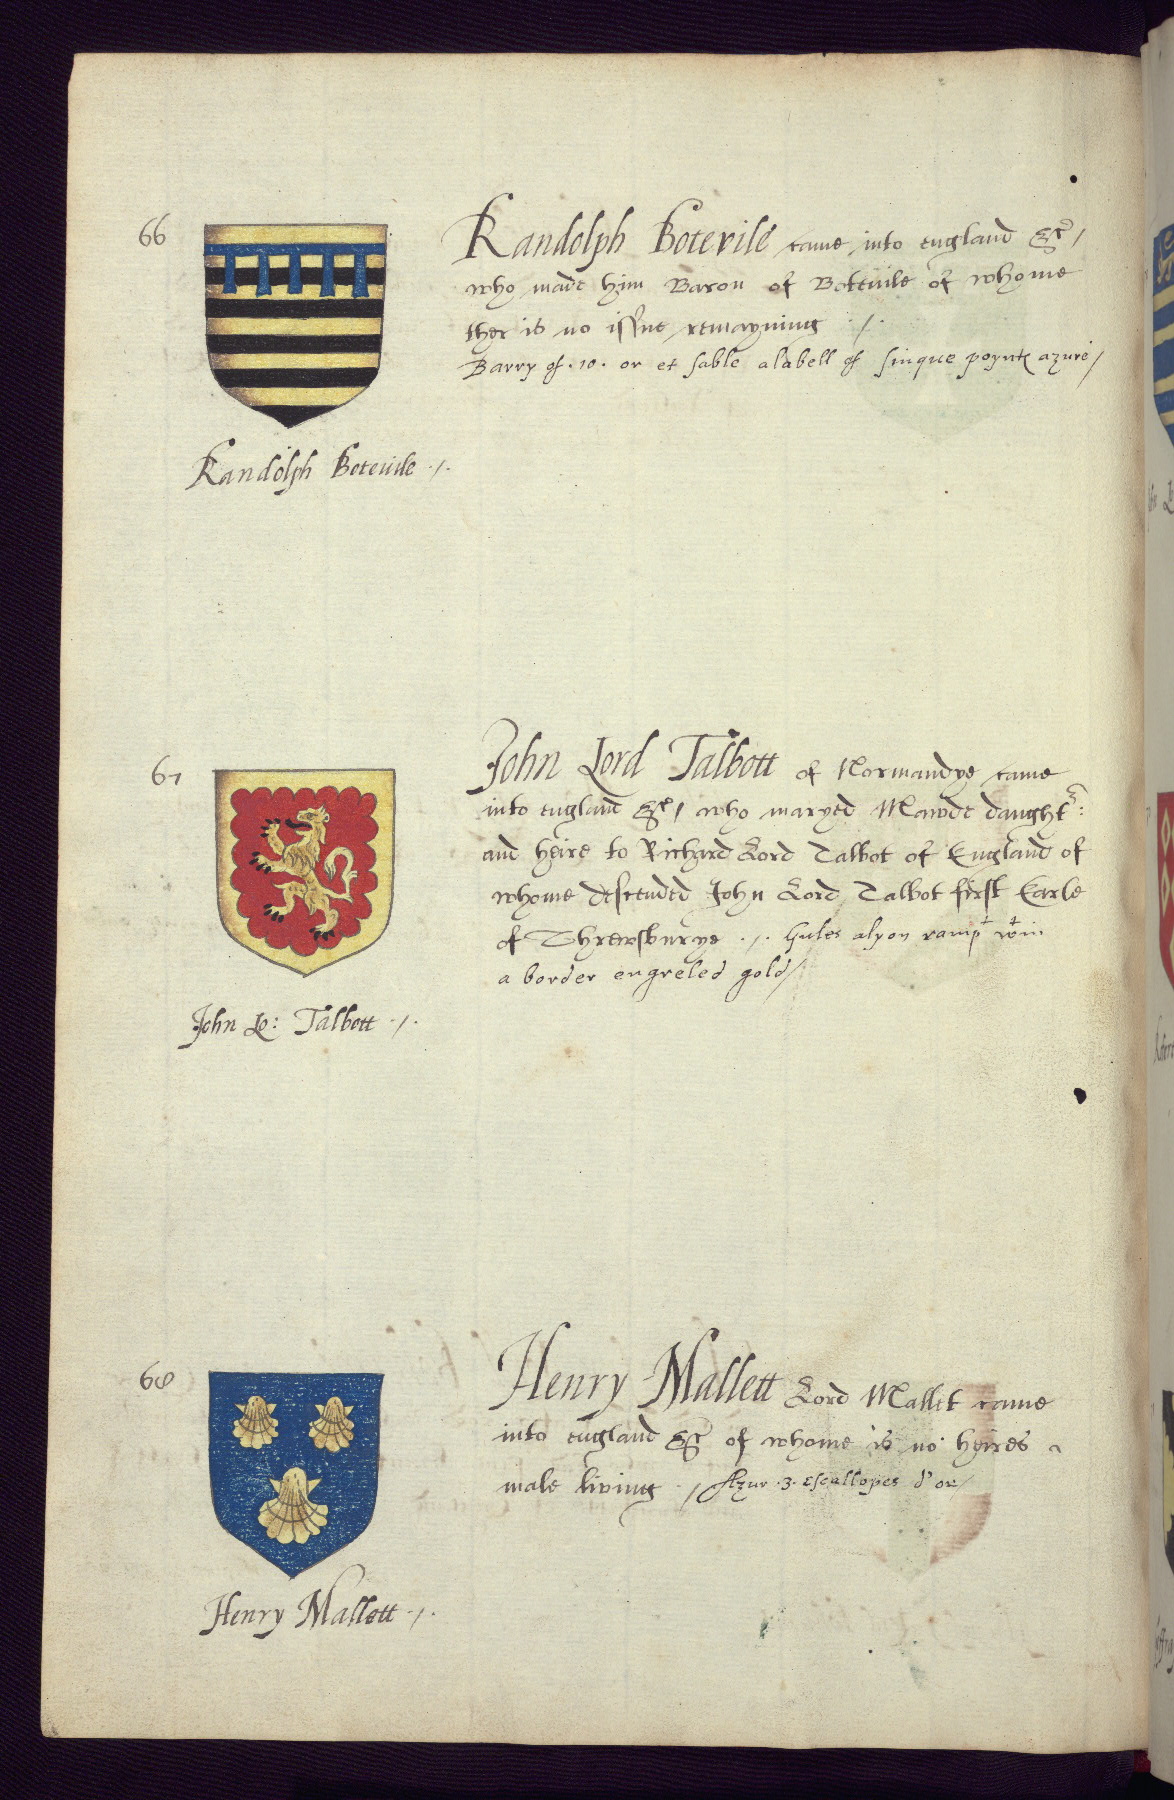 66
Randolph Botevile came into england &c /
who made him Baron of Botevile of whome
ther is no issue remayning /.
Barry of .10. or et sable a labell of sinque poynts azure /
Randolph Botevile ./.
67
John Lord Talbott of Normandye came
into england &c / who maryed Mawde daught:
and heire to Richard Lord Talbot of England of
whome descended John Lord Talbot first Earle
of Shrewsburye ./. Gules a lyon rampt wtin
a border engreled gold /
John Lo: Talbott ./.
68
Henry Mallett Lord Mallet came
into england &c of whome is no heires
male living ./ Azur .3. escallopes d'or /
Henry Mallett ./.